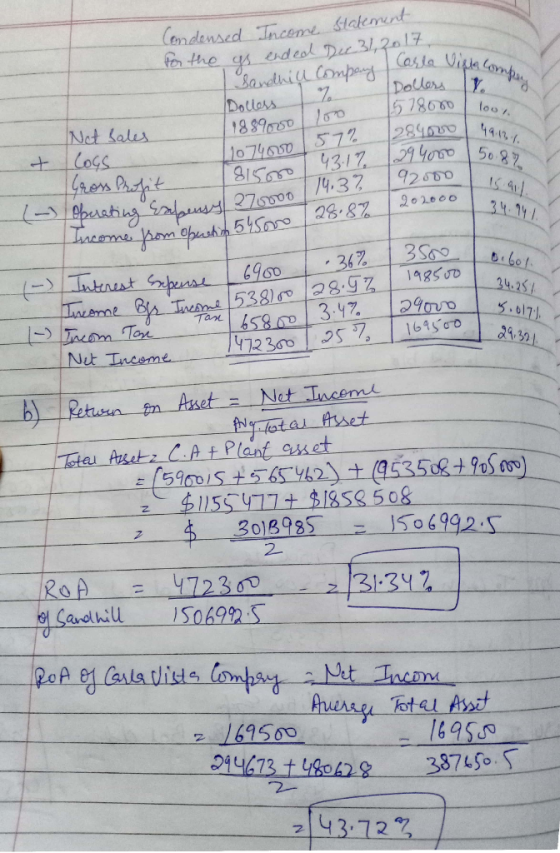 Condensed Income Statement
For the ys ended Dec 31, 2017.
Sandhill Company Carla Vista Company
Dollars % Dollars %
Net Sales 1889000 100 578000 100%
+ COGS 1074000 57% 284000 49.13%
Gross Profit 815000 43.1% 294000 50.8%
(-) Operating Expenses 270000 14.3% 92000 15.91%
Income from Operation 545000 28.8% 202000 34.94%
(-) Interest Expense 6900 .36% 3500 0.60%
Income B/s Income Tax 538100 28.5% 198500 34.35%
(-) Incom Tax 65800 3.4% 29000 5.017%
Net Income 472300 25% 169500 29.32%
b) Return on Asset = Net Income
Avg. Total Asset
Total Asset = C.A + Plant asset
= (590015 + 565462) + (953508 + 905000)
= $1155477 + $1858508
= $ 3013985 = 1506992.5
2
ROA = 472300 = 31.34%
of Sandhill 1506992.5
ROA of Carla Vista Company = Net Incom
Average Total Asset
= 169500 = 169500
294673 + 480628 387650.5
2
= 43.72%